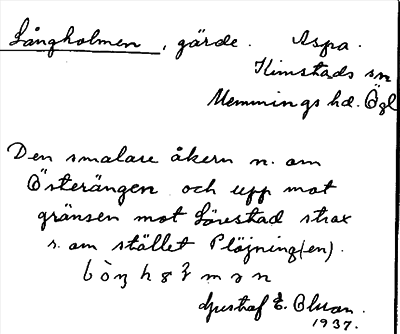 Långholmen, gärde. Aspa.
Kimstads sn
Memmings hd. Ögl
Den smalare åkern n. om
Österängen och upp mot
gränsen mot Lövestad strax
s. om stället Plöjning(en).
Gustaf E. Olson.
1937.